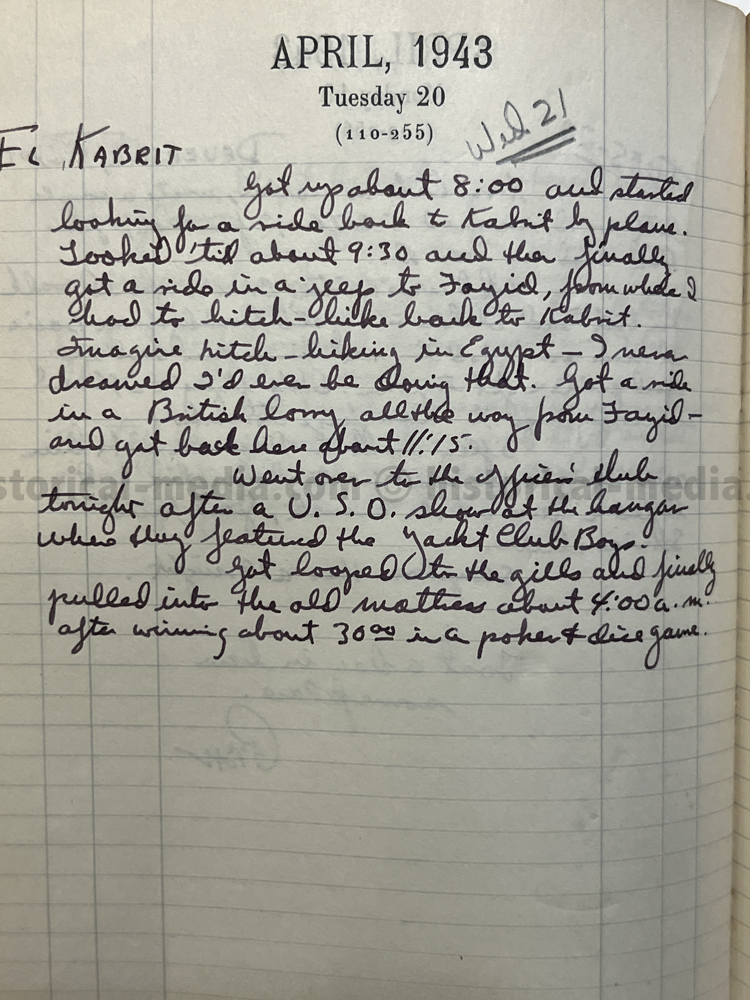 APRIL, 1943
Tuesday 20
(110-255)
Wed. 21
EL KABRIT
Got up about 8:00 and started
looking for a ride back to Kabrit by plane.
Looked 'til about 9:30 and then finally
got a ride in a jeep to Fayid, from where I
had to hitch-hike back to Kabrit.
Imagine hitch-hiking in Egypt - I never
dreamed I'd ever be doing that. Got a ride
in a British lorry all the way from Fayid -
and got back here about 11:15.
Went over to the officers' club
tonight after a U. S. O. show at the hangar
where they featured the Yacht Club Boys.
Got looped to the gills and finally
pulled into the old mattress about 4:00 a.m.
after winning about 30.00 in a poker & dice game.
historical-media.com © historical-media